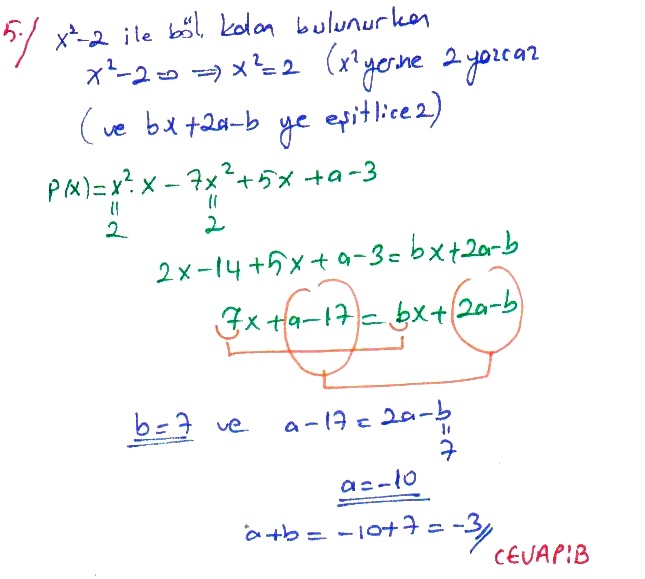 5./ x²-2 ile böl. kalan bulunurken
x²-2=0 ⇒ x²=2 (x² yerine 2 yazcaz
(ve bx+2a-b ye eşitlicez)
P(x)=x².x - 7x²+5x+a-3
= =
2 2
2x-14+5x+a-3=bx+2a-b
7x+a-17=bx+2a-b
b=7 ve a-17=2a-b
=
7
a=-10
a+b=-10+7=-3//
CEVAP:B